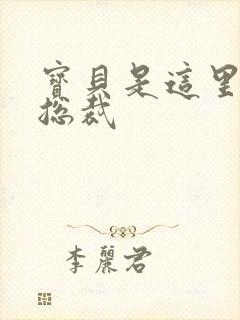 寶貝是這里
總裁
李麗君